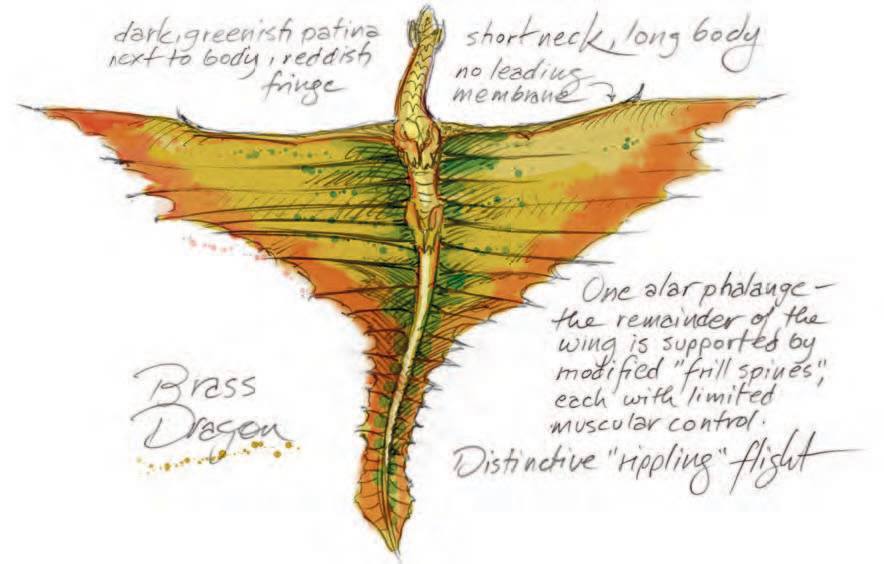 dark, greenish patina
next to body, reddish
fringe
short neck, long body
no leading
membrane
One alar phalange –
the remainder of the
wing is supported by
modified "frill spines",
each with limited
muscular control.
Distinctive "rippling" flight
Brass
Dragon